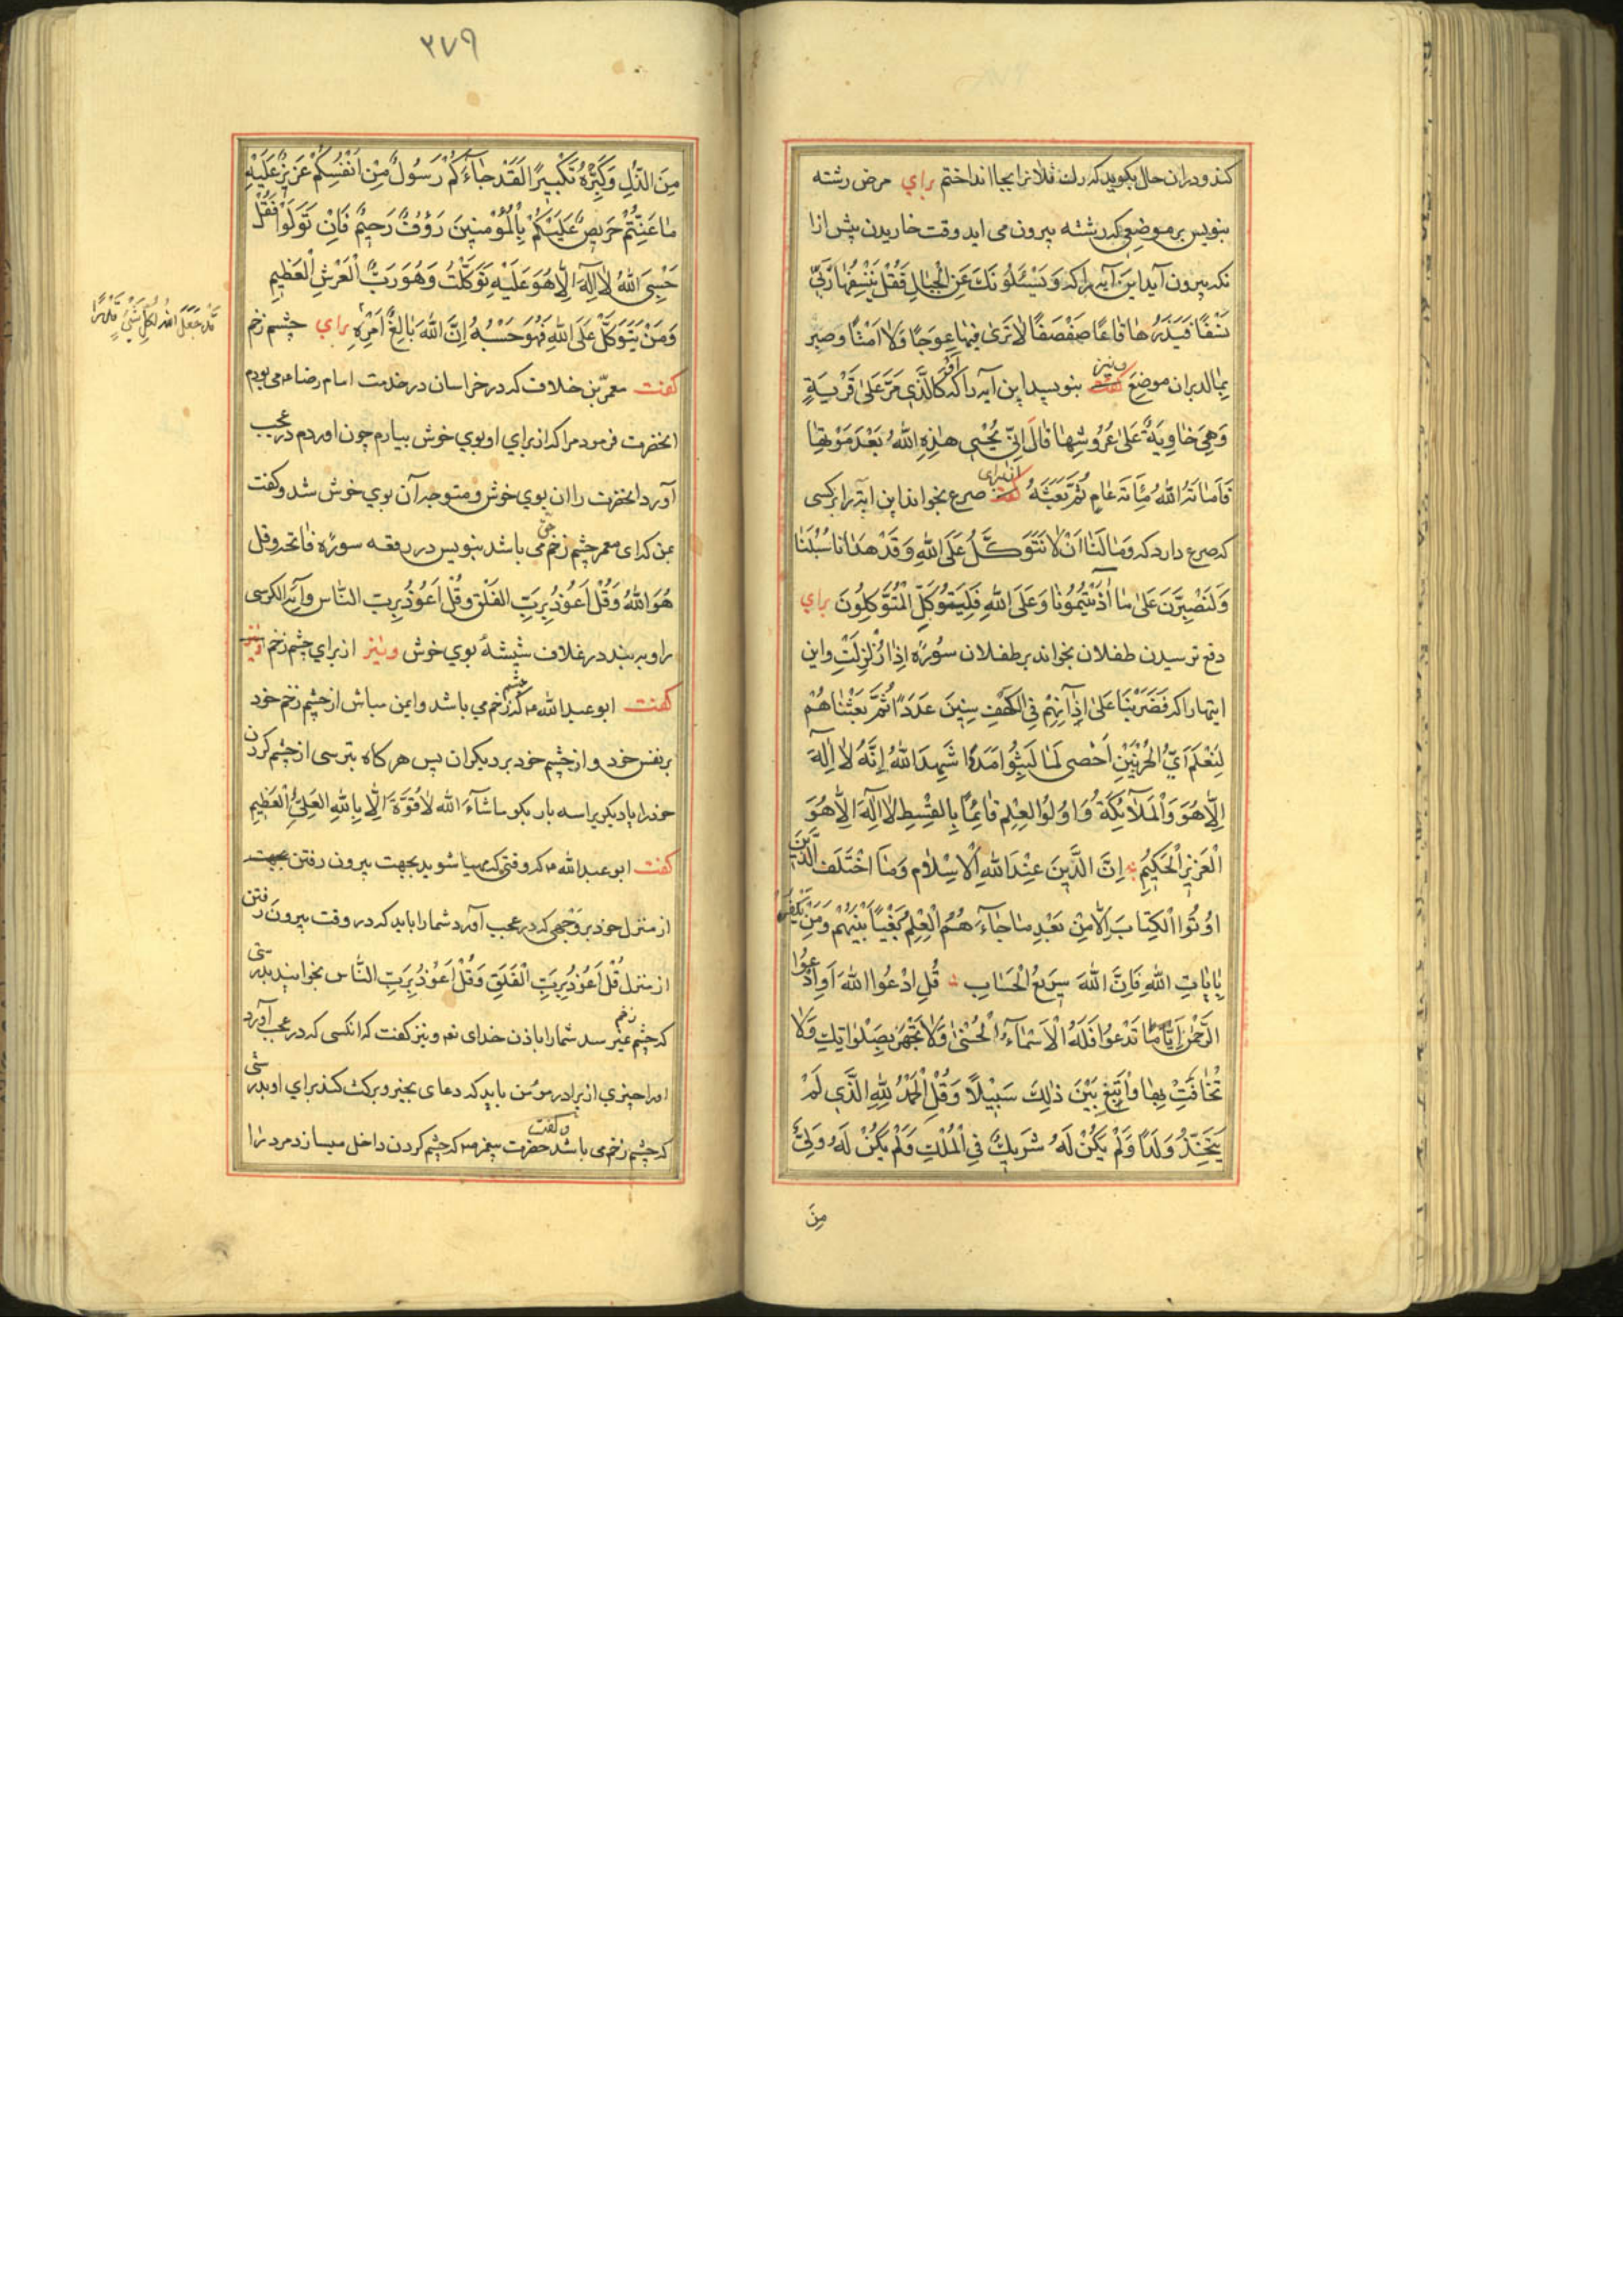 کند و دران حال بکوید که رک فلانرا اینجا انداختم برای مرض رشته
بنویس بر موضعی که رشته بیرون می اید وقت خاریدن پیش ازا
نکه بیرون آید این آیه را که وَیَسْئَلُونَكَ عَنِ الْجِبَالِ فَقُلْ یَنْسِفُهَا رَبِّی
نَسْفًا فَیَذَرُهَا قَاعًا صَفْصَفًا لَا تَرَیٰ فِیهَا عِوَجًا وَلَا اَمْتًا و صبر
بمالد بران موضع ونیز بنویسد این آیه را که اَوْ کَالَّذِی مَرَّ عَلیٰ قَرْیَةٍ
وَهِیَ خَاوِیَةٌ عَلیٰ عُرُوشِهَا قَالَ اَنّیٰ یُحْیِی هٰذِهِ اللّٰهُ بَعْدَ مَوْتِهَا
فَاَمَاتَهُ اللّٰهُ مِائَةَ عَامٍ ثُمَّ بَعَثَهُ از برای صرع بخواند این ایه را بر کسی
که صرع دارد که وَمَا لَنَا اَنْ لَا نَتَوَکَّلَ عَلَی اللّٰهِ وَقَدْ هَدَانَا سُبُلَنَا
وَلَنَصْبِرَنَّ عَلیٰ مَا اٰذَیْتُمُونَا وَعَلَی اللّٰهِ فَلْیَتَوَکَّلِ الْمُتَوَکِّلُونَ برای
دفع ترسیدن طفلان بخواند بر طفلان سُورَه اِذَا زُلْزِلَتْ و این
ایتهارا که فَضَرَبْنَا عَلیٰ اٰذَانِهِمْ فِی الْکَهْفِ سِنِینَ عَدَدًا ثُمَّ بَعَثْنَاهُمْ
لِنَعْلَمَ اَیُّ الْحِزْبَیْنِ اَحْصیٰ لِمَا لَبِثُوا اَمَدًا شَهِدَ اللّٰهُ اِنَّهُ لَا اِلٰهَ
اِلَّا هُوَ وَالْمَلَآئِکَةُ وَاُولُوا الْعِلْمِ قَائِمًا بِالْقِسْطِ لَا اِلٰهَ اِلَّا هُوَ
الْعَزِیزُ الْحَکِیمُ اِنَّ الدِّینَ عِنْدَ اللّٰهِ الْاِسْلَامُ وَمَا اخْتَلَفَ الَّذِینَ
اُوتُوا الْکِتَابَ اِلَّا مِنْ بَعْدِ مَا جَآءَهُمُ الْعِلْمُ بَغْیًا بَیْنَهُمْ وَمَنْ یَکْفُرْ
بِاٰیَاتِ اللّٰهِ فَاِنَّ اللّٰهَ سَرِیعُ الْحِسَابِ قُلِ ادْعُوا اللّٰهَ اَوِ ادْعُوا
الرَّحْمٰنَ اَیًّامَّا تَدْعُوا فَلَهُ الْاَسْمَآءُ الْحُسْنیٰ وَلَا تَجْهَرْ بِصَلٰوتِكَ وَلَا
تُخَافِتْ بِهَا وَابْتَغِ بَیْنَ ذٰلِكَ سَبِیلًا وَقُلِ الْحَمْدُ لِلّٰهِ الَّذِی لَمْ
یَتَّخِذْ وَلَدًا وَلَمْ یَکُنْ لَهُ شَرِیكٌ فِی الْمُلْكِ وَلَمْ یَکُنْ لَهُ وَلِیٌّ
مِنَ
٣٧٩
مِنَ الذُّلِّ وَکَبِّرْهُ تَکْبِیرًا لَقَدْ جَآءَکُمْ رَسُولٌ مِنْ اَنْفُسِکُمْ عَزِیزٌ عَلَیْهِ
مَا عَنِتُّمْ حَرِیصٌ عَلَیْکُمْ بِالْمُؤْمِنِینَ رَؤُفٌ رَحِیمٌ فَاِنْ تَوَلَّوْا فَقُلْ
حَسْبِیَ اللّٰهُ لَا اِلٰهَ اِلَّا هُوَ عَلَیْهِ تَوَکَّلْتُ وَهُوَ رَبُّ الْعَرْشِ الْعَظِیمِ
وَمَنْ یَتَوَکَّلْ عَلَی اللّٰهِ فَهُوَ حَسْبُهُ اِنَّ اللّٰهَ بَالِغُ اَمْرِهِ برای چشم زخم
قَدْ جَعَلَ اللّٰهُ لِکُلِّ شَیْءٍ قَدْرًا
کفت معمّر بن خلاف که در خراسان در خدمت امام رضا می بودم
انحضرت فرمود مرا که از برای او بوی خوش بیارم چون اوردم در عجب
آورد انحضرت را ان بوی خوش و متوجه آن بوی خوش شد و کفت
بمن که ای معمر چشم زخم حق می باشد بنویس در رقعه سوره فاتحه و قل
هُوَ اللّٰهُ وَقُلْ اَعُوذُ بِرَبِّ الفَلَق وَقُلْ اَعُوذُ بِرَبِّ النَّاس و آیة الکرسی
را و بر بند در غلاف شیشهٔ بوی خوش ونیز از برای چشم زخم
کفت ابو عبد الله که چشم زخم می باشد و ایمن مباش از چشم زخم خود
بر نفس خود و از چشم خود بر دیکران پس هر کاه بترسی از چشم کردن
خود را یا دیکریرا سه بار بکو ماشآءَ الله لَا قُوَّةَ اِلَّا بِاللّٰهِ العَلِیِّ الْعَظِیمِ
کفت ابو عبد الله که وقتی که مهیا شوید بجهت بیرون رفتن بجهت
از منزل خود بر وجهی که در عجب آورد شما را باید که در وقت بیرون رفتن
از منزل قُلْ اَعُوذُ بِرَبِّ الْفَلَقِ وَقُلْ اَعُوذُ بِرَبِّ النَّاس بخوانید بدرستی
که چشم زخم نمیرسد شما را باذن خدای تع و نیز کفت که انکسی که در عجب آورد
او را چیزی از برادر مؤمن باید که دعای بخیر و برکت کند برای او بدرستی
که چشم زخم می باشد و کفت حضرت پیغمبر که چشم کردن داخل میسازد مرد را